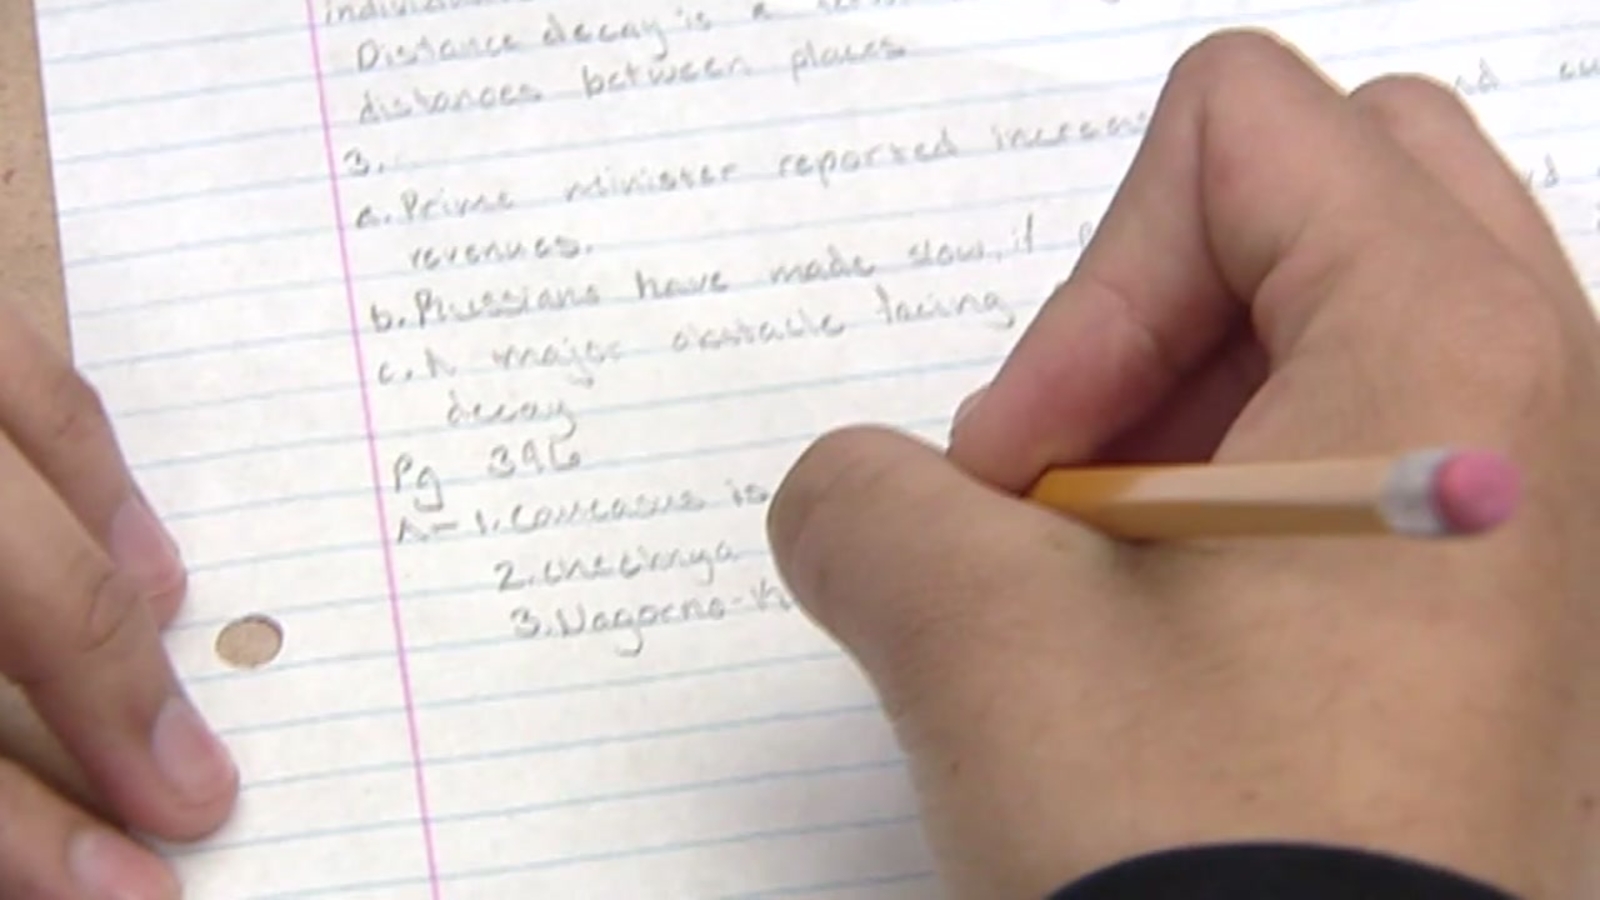 Distance decay is a
distances between places
3.
a. Prime minister reported increas
revenues.
b. Russians have made slow, if
c. A major obstacle facing
decay
Pg 396
A- 1. Caucasus is
2. chechnya
3. Nagorno-K